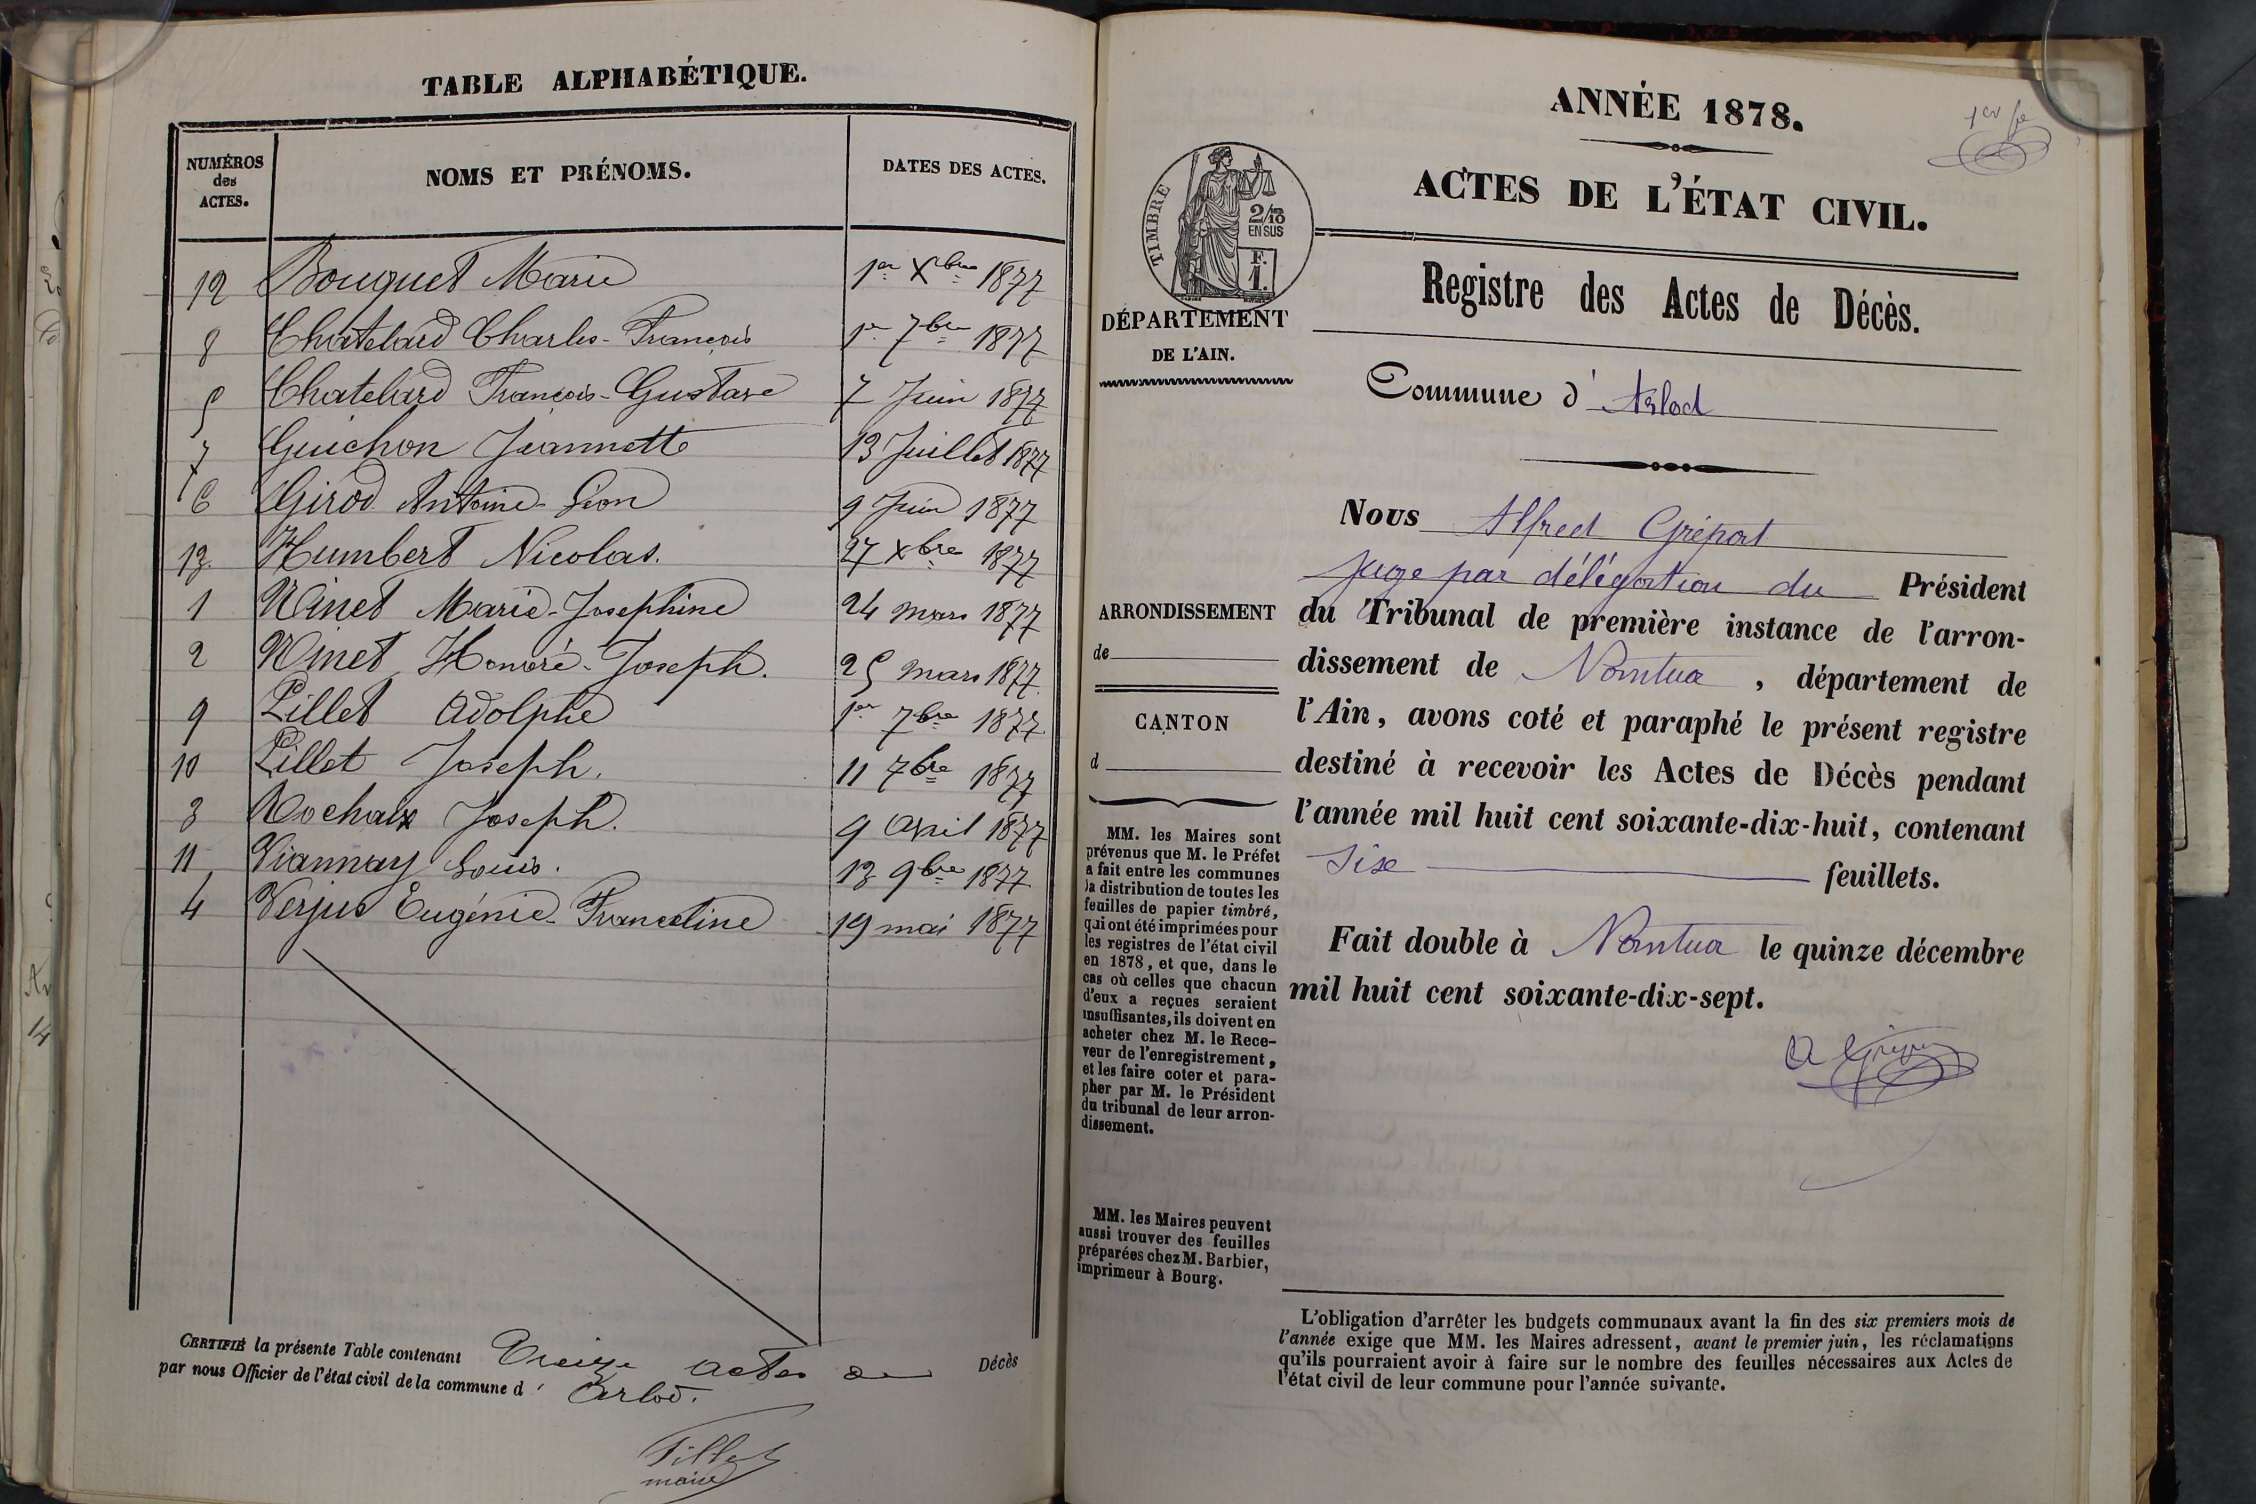 TABLE ALPHABÉTIQUE.
NUMÉROS des ACTES. NOMS ET PRÉNOMS. DATES DES ACTES.
12 Bouquet Marie 1er Xbre 1877
8 Chatelard Charles-François 1er 7bre 1877
5 Chatelard François-Gustave 7 Juin 1877
7 Guichon Jeannette 13 Juillet 1877
6 Girod Antoine-Léon 9 Juin 1877
13 Humbert Nicolas. 27 Xbre 1877
1 Ninet Marie-Josephine 24 mars 1877
2 Ninet Honoré-Joseph. 25 mars 1877
9 Pillet Adolphe 1er 7bre 1877
10 Pillet Joseph. 11 7bre 1877
3 Rochaix Joseph. 9 avril 1877
11 Viannay Louis. 13 9bre 1877
4 Verjus Eugénie-Franceline 19 mai 1877
CERTIFIÉ la présente Table contenant Treize actes de Décès
par nous Officier de l'état civil de la commune d' Arlod.
Pillet
maire
1er fe
ANNÉE 1878.
ACTES DE L'ÉTAT CIVIL.
TIMBRE
2/10
EN SUS
F.
1.
Registre des Actes de Décès.
DÉPARTEMENT
DE L'AIN.
Commune d' Arlod
Nous Alfred
juge par délégation du Président
ARRONDISSEMENT
de
du Tribunal de première instance de l'arron-
dissement de Nantua, département de
CANTON
d
l'Ain, avons coté et paraphé le présent registre
destiné à recevoir les Actes de Décès pendant
l'année mil huit cent soixante-dix-huit, contenant
six feuillets.
Fait double à Nantua le quinze décembre
mil huit cent soixante-dix-sept.
MM. les Maires sont
prévenus que M. le Préfet
a fait entre les communes
la distribution de toutes les
feuilles de papier timbré,
qui ont été imprimées pour
les registres de l'état civil
en 1878, et que, dans le
cas où celles que chacun
d'eux a reçues seraient
insuffisantes, ils doivent en
acheter chez M. le Rece-
veur de l'enregistrement,
et les faire coter et para-
pher par M. le Président
du tribunal de leur arron-
dissement.
MM. les Maires peuvent
aussi trouver des feuilles
préparées chez M. Barbier,
imprimeur à Bourg.
L'obligation d'arrêter les budgets communaux avant la fin des six premiers mois de
l'année exige que MM. les Maires adressent, avant le premier juin, les réclamations
qu'ils pourraient avoir à faire sur le nombre des feuilles nécessaires aux Actes de
l'état civil de leur commune pour l'année suivante.